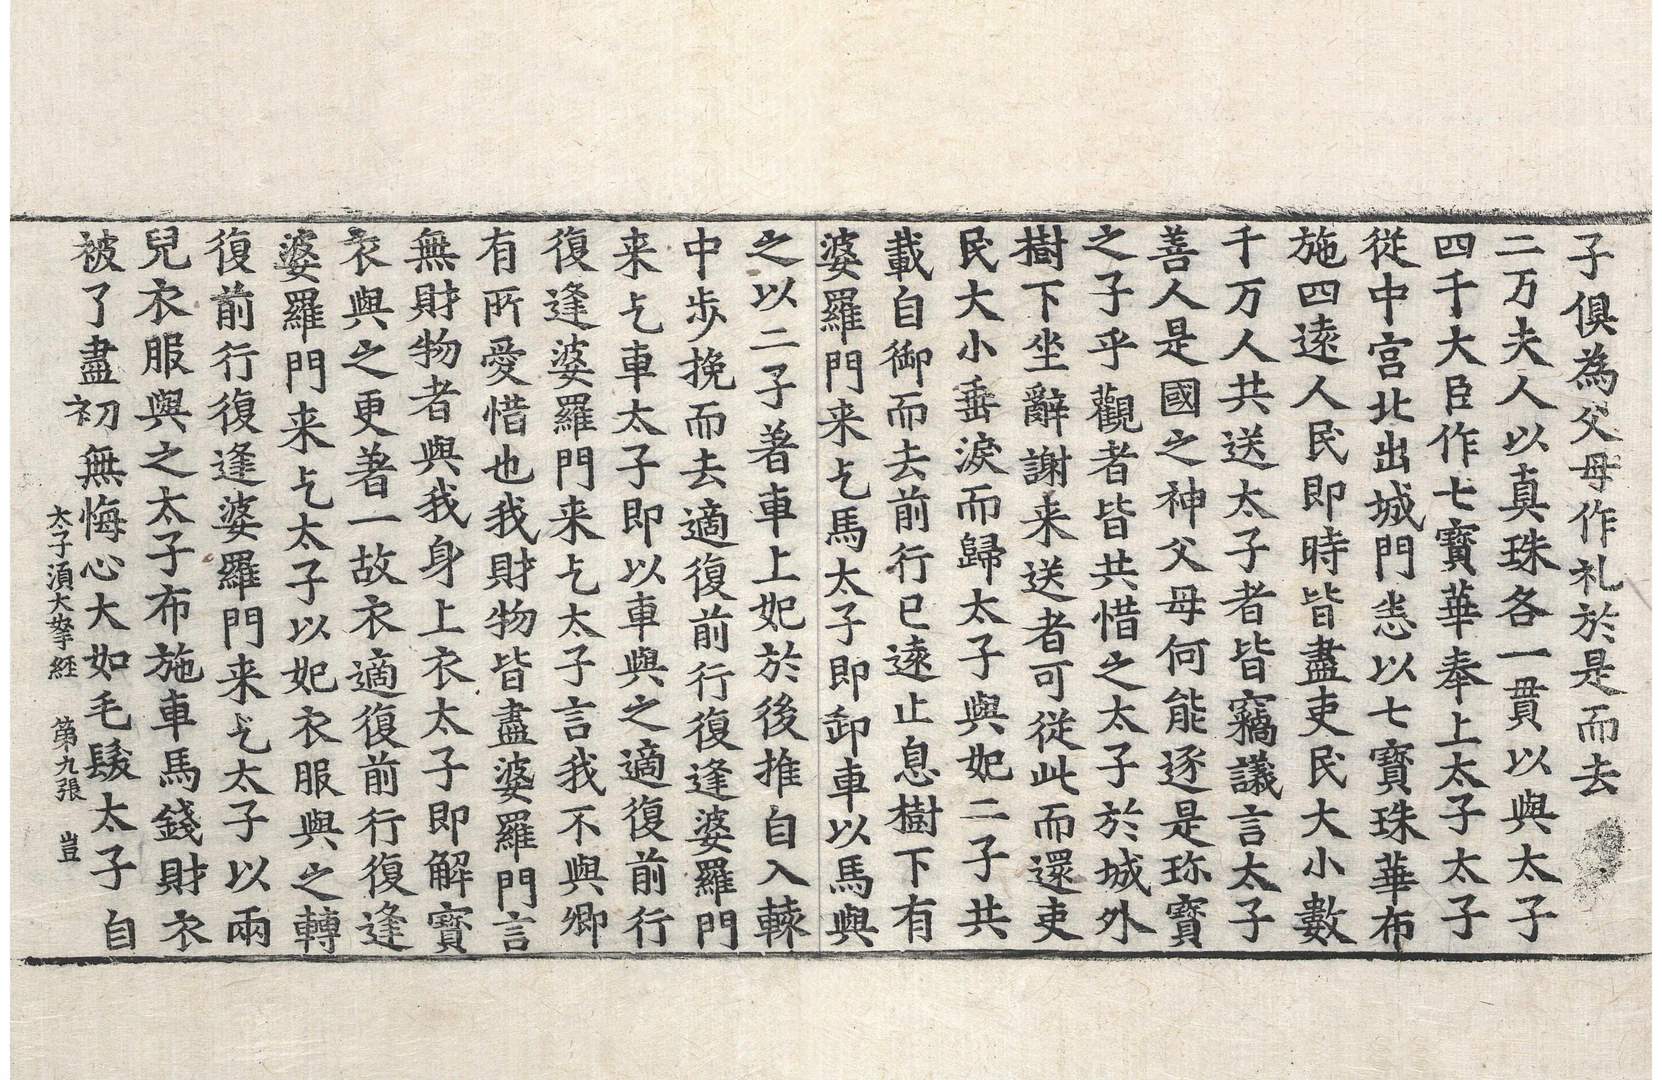 子俱為父母作礼於是而去
二万夫人以真珠各一貫以與太子
四千大臣作七寶華奉上太子太子
從中宮北出城門悉以七寶珠華布
施四遠人民即時皆盡吏民大小數
千万人共送太子者皆竊議言太子
善人是國之神父母何能逐是珎寶
之子乎觀者皆共惜之太子於城外
樹下坐辭謝来送者可從此而還吏
民大小垂淚而歸太子與妃二子共
載自御而去前行已遠止息樹下有
婆羅門来乞馬太子即卸車以馬與
之以二子著車上妃於後推自入轅
中步挽而去適復前行復逢婆羅門
来乞車太子即以車與之適復前行
復逢婆羅門来乞太子言我不與卿
有所愛惜也我財物皆盡婆羅門言
無財物者與我身上衣太子即解寶
衣與之更著一故衣適復前行復逢
婆羅門来乞太子以妃衣服與之轉
復前行復逢婆羅門来乞太子以兩
兒衣服與之太子布施車馬錢財衣
被了盡初無悔心大如毛髮太子自
太子湏大拏經 第九張 豈